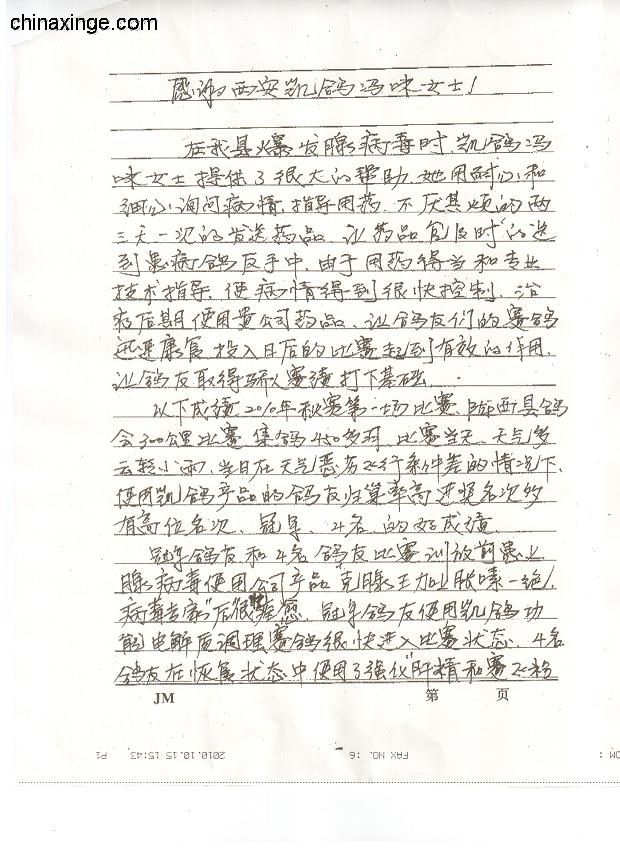 chinaxinge.com
感谢西安凯鸽冯咪女士!
在我县爆发腺病毒时,凯鸽冯
咪女士提供了很大的帮助,她用耐心和
细心询问病情,指导用药,不厌其烦的两
三天一次的发送药品,让药品能及时"的送
到患病鸽友手中,由于用药得当和专业
技术指导,使病情得到很快控制,治
疗后期使用贵公司药品、让鸽友们的赛鸽
迅速康复投入日后的比赛起到有效的作用,
让鸽友取得骄人赛绩打下基础。
以下成绩2010年秋赛第一场比赛,陇西县鸽
会300公里比赛 集鸽450多羽,比赛当天,天气多
云转小雨,当日在天气恶劣飞行条件差的情况下,
使用凯鸽产品的鸽友归巢率高进奖名次多
有高位名次、冠军、4名、的好成绩
冠军鸽友和4名鸽友比赛训放前患上
腺病毒使用公司产品"克腺王加上胀嗉一绝/
病毒专家"后很快痊愈,冠军鸽友使用凯鸽功
能电解质调理赛鸽很快进入比赛状态,4名
鸽友在恢复状态中使用了强化"肝精和赛飞粉
JM 第 页
2010.10.15 15:43 P1
FAX NO. :6
OM :